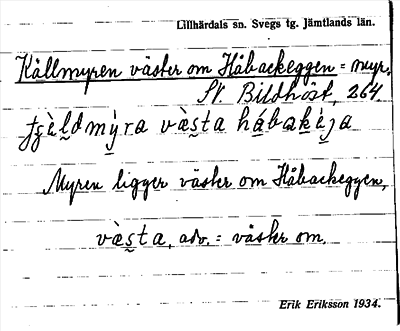 Lillhärdals sn. Svegs tg. Jämtlands län.
Källmyren väster om Håbackeggen = myr.
St. Bildhöst, 264.
väs̮ta
Myren ligger väster om Håbackeggen,
väs̮ta, adv. = väster om.
Erik Eriksson 1934.